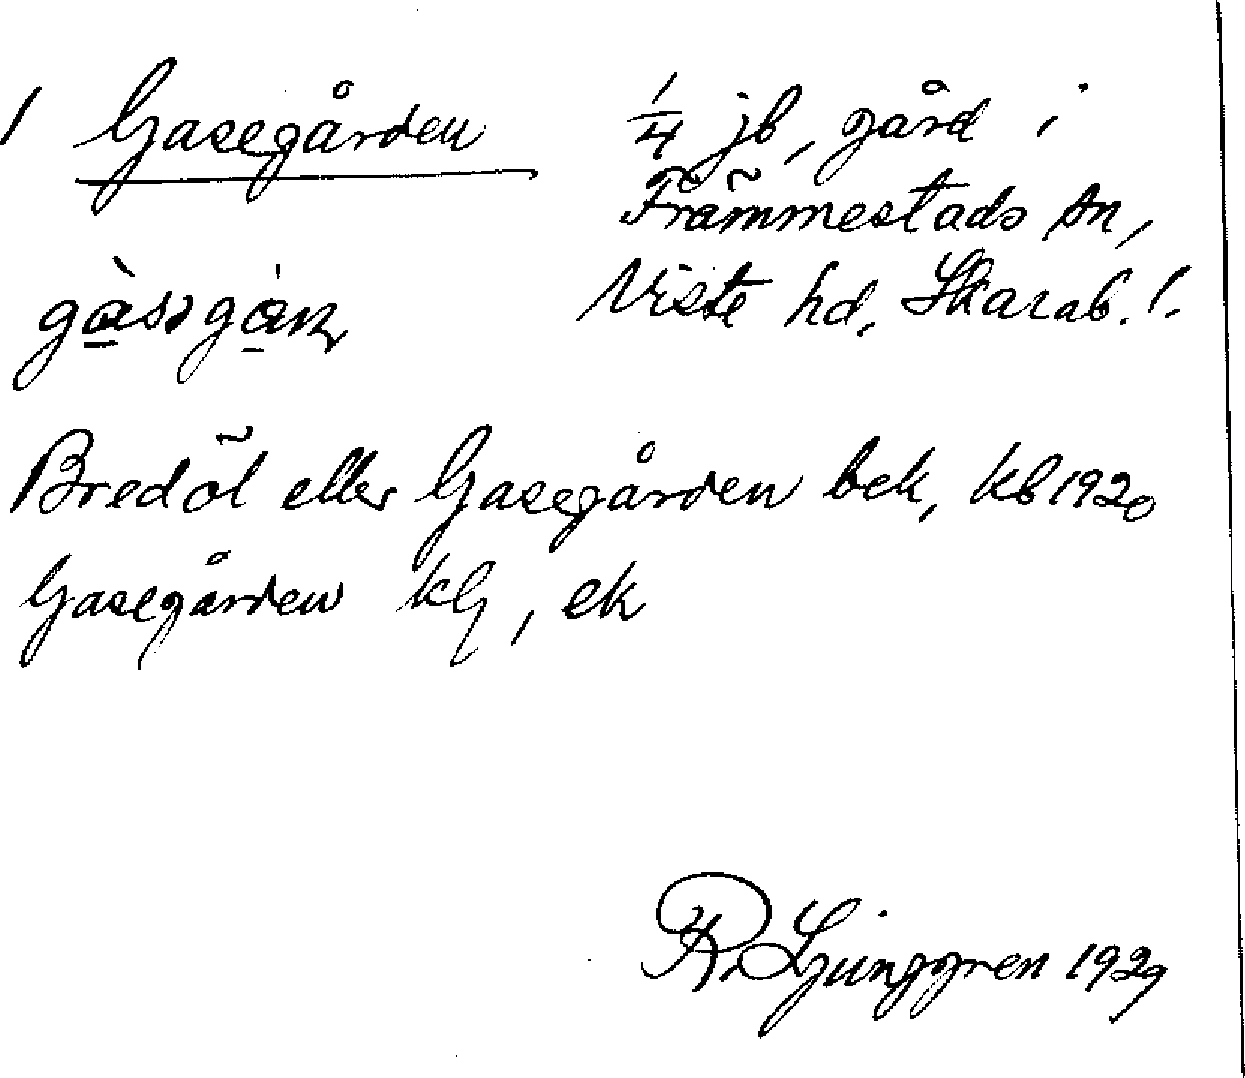 1 Gasegården 1/4 jb, gård i
Främmestads sn,
Viste hd, Skarab. l.
Bredöl eller Gasegården bek, kb 1920
Gasegården kg, ek
R. Ljunggren 1929